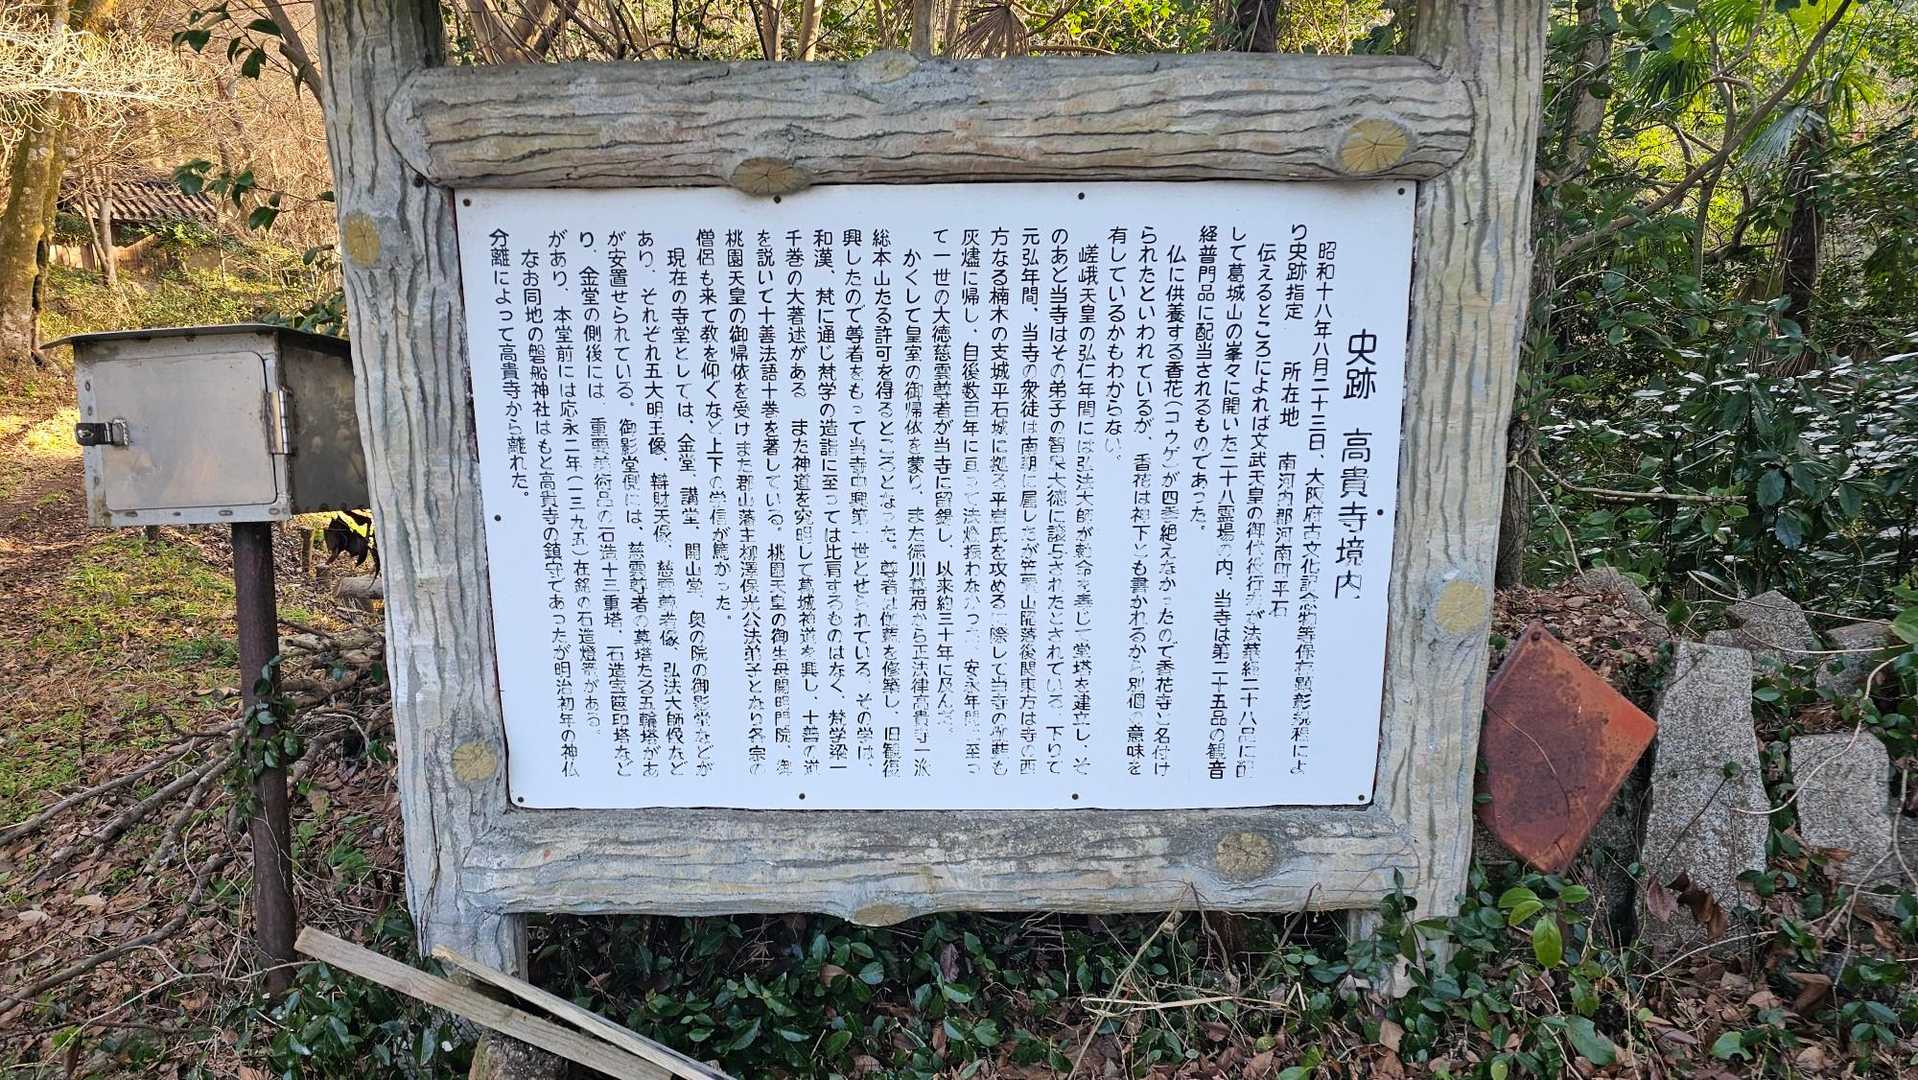 史跡 高貴寺境内
昭和十八年八月二十三日、大阪府古文化記念物等保存顕彰規程によ
り史跡指定 所在地 南河内郡河南町平石
伝えるところによれば文武天皇の御代役行者が法華経二十八品に配
して葛城山の峯々に開いた二十八霊場の内、当寺は第二十五品の観音
経普門品に配当されるものであった。
仏に供養する香花(コウゲ)が四季絶えなかったので香花寺と名付け
られたといわれているが、香花は神下とも書かれるから別個の意味を
有しているかもわからない。
嵯峨天皇の弘仁年間には弘法大師が勅命を奉じて堂塔を建立し、そ
のあと当寺はその弟子の智泉大徳に談与されたとされている。下りて
元弘年間、当寺の衆徒は南朝に属したが笠置山陥落後関東方は寺の西
方なる楠木の支城平石城に拠る平岩氏を攻めるに際して当寺の伽藍も
灰燼に帰し、自後数百年に亘って法燈振わなかった。安永年間に至っ
て一世の大徳慈雲尊者が当寺に留錫し、以来約三十年に及んだ。
かくして皇室の御帰依を蒙り、また徳川幕府から正法律高貴寺一派
総本山たる許可を得るところとなった。尊者は伽藍を修築し、旧観復
興したので尊者をもって当寺中興第一世とせられている。その学は、
和漢、梵に通じ梵学の造詣に至っては比肩するものはなく、梵学梁一
千巻の大著述がある また神道を究明して葛城神道を興し、十善の道
を説いて十善法語十巻を著している。桃園天皇の御生母開明門院、御
桃園天皇の御帰依を受けまた郡山藩主柳澤保光公法弟子となり各宗の
僧侶も来て教を仰ぐなど上下の崇信が篤かった。
現在の寺堂としては、金堂、講堂、開山堂、奥の院の御影堂などが
あり、それぞれ五大明王像、辯財天像、慈雲尊者像、弘法大師像など
が安置せられている。御影堂側には、慈雲尊者の墓塔たる五輪塔があ
り、金堂の側後には、重要美術品の石造十三重塔、石造宝篋印塔など
があり、本堂前には応永二年(一三九五)在銘の石造燈籠がある。
なお同地の磐船神社はもと高貴寺の鎮守であったが明治初年の神仏
分離によって高貴寺から離れた。